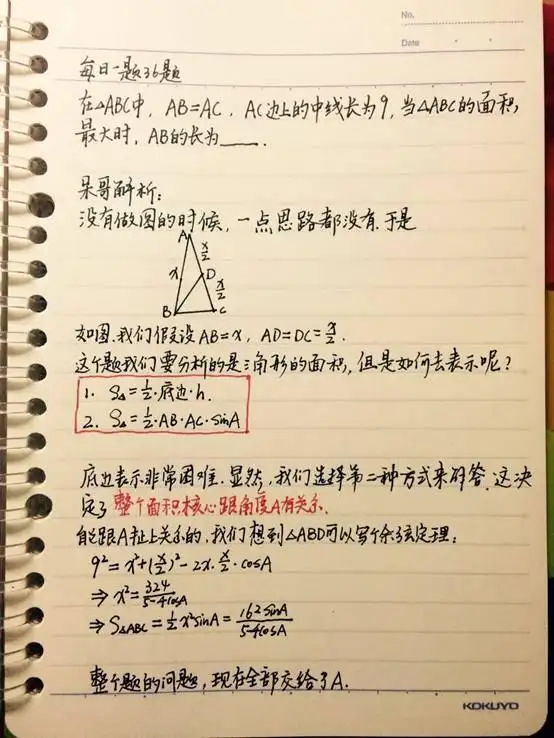 No.
Date
每日一题36题
在△ABC中, AB=AC, AC边上的中线长为9, 当△ABC的面积
最大时, AB的长为____.
呆哥解析:
没有做图的时候, 一点思路都没有. 于是
A
x/2
x
D
x/2
B
C
如图. 我们假设 AB=x, AD=DC=x/2.
这个题我们要分析的是三角形的面积, 但是如何去表示呢?
1. S△=1/2·底边·h.
2. S△=1/2·AB·AC·sinA
底边表示非常困难. 显然, 我们选择第二种方式来解答. 这决
定了整个面积核心跟角度A有关系.
能跟A扯上关系的, 我们想到△ABD可以写个余弦定理:
9²=x²+(x/2)²-2x·x/2·cosA
⇒ x²=324/(5-4cosA)
⇒ S△ABC=1/2x²sinA=162sinA/(5-4cosA)
整个题的问题, 现在全部交给了A.
KOKUYO